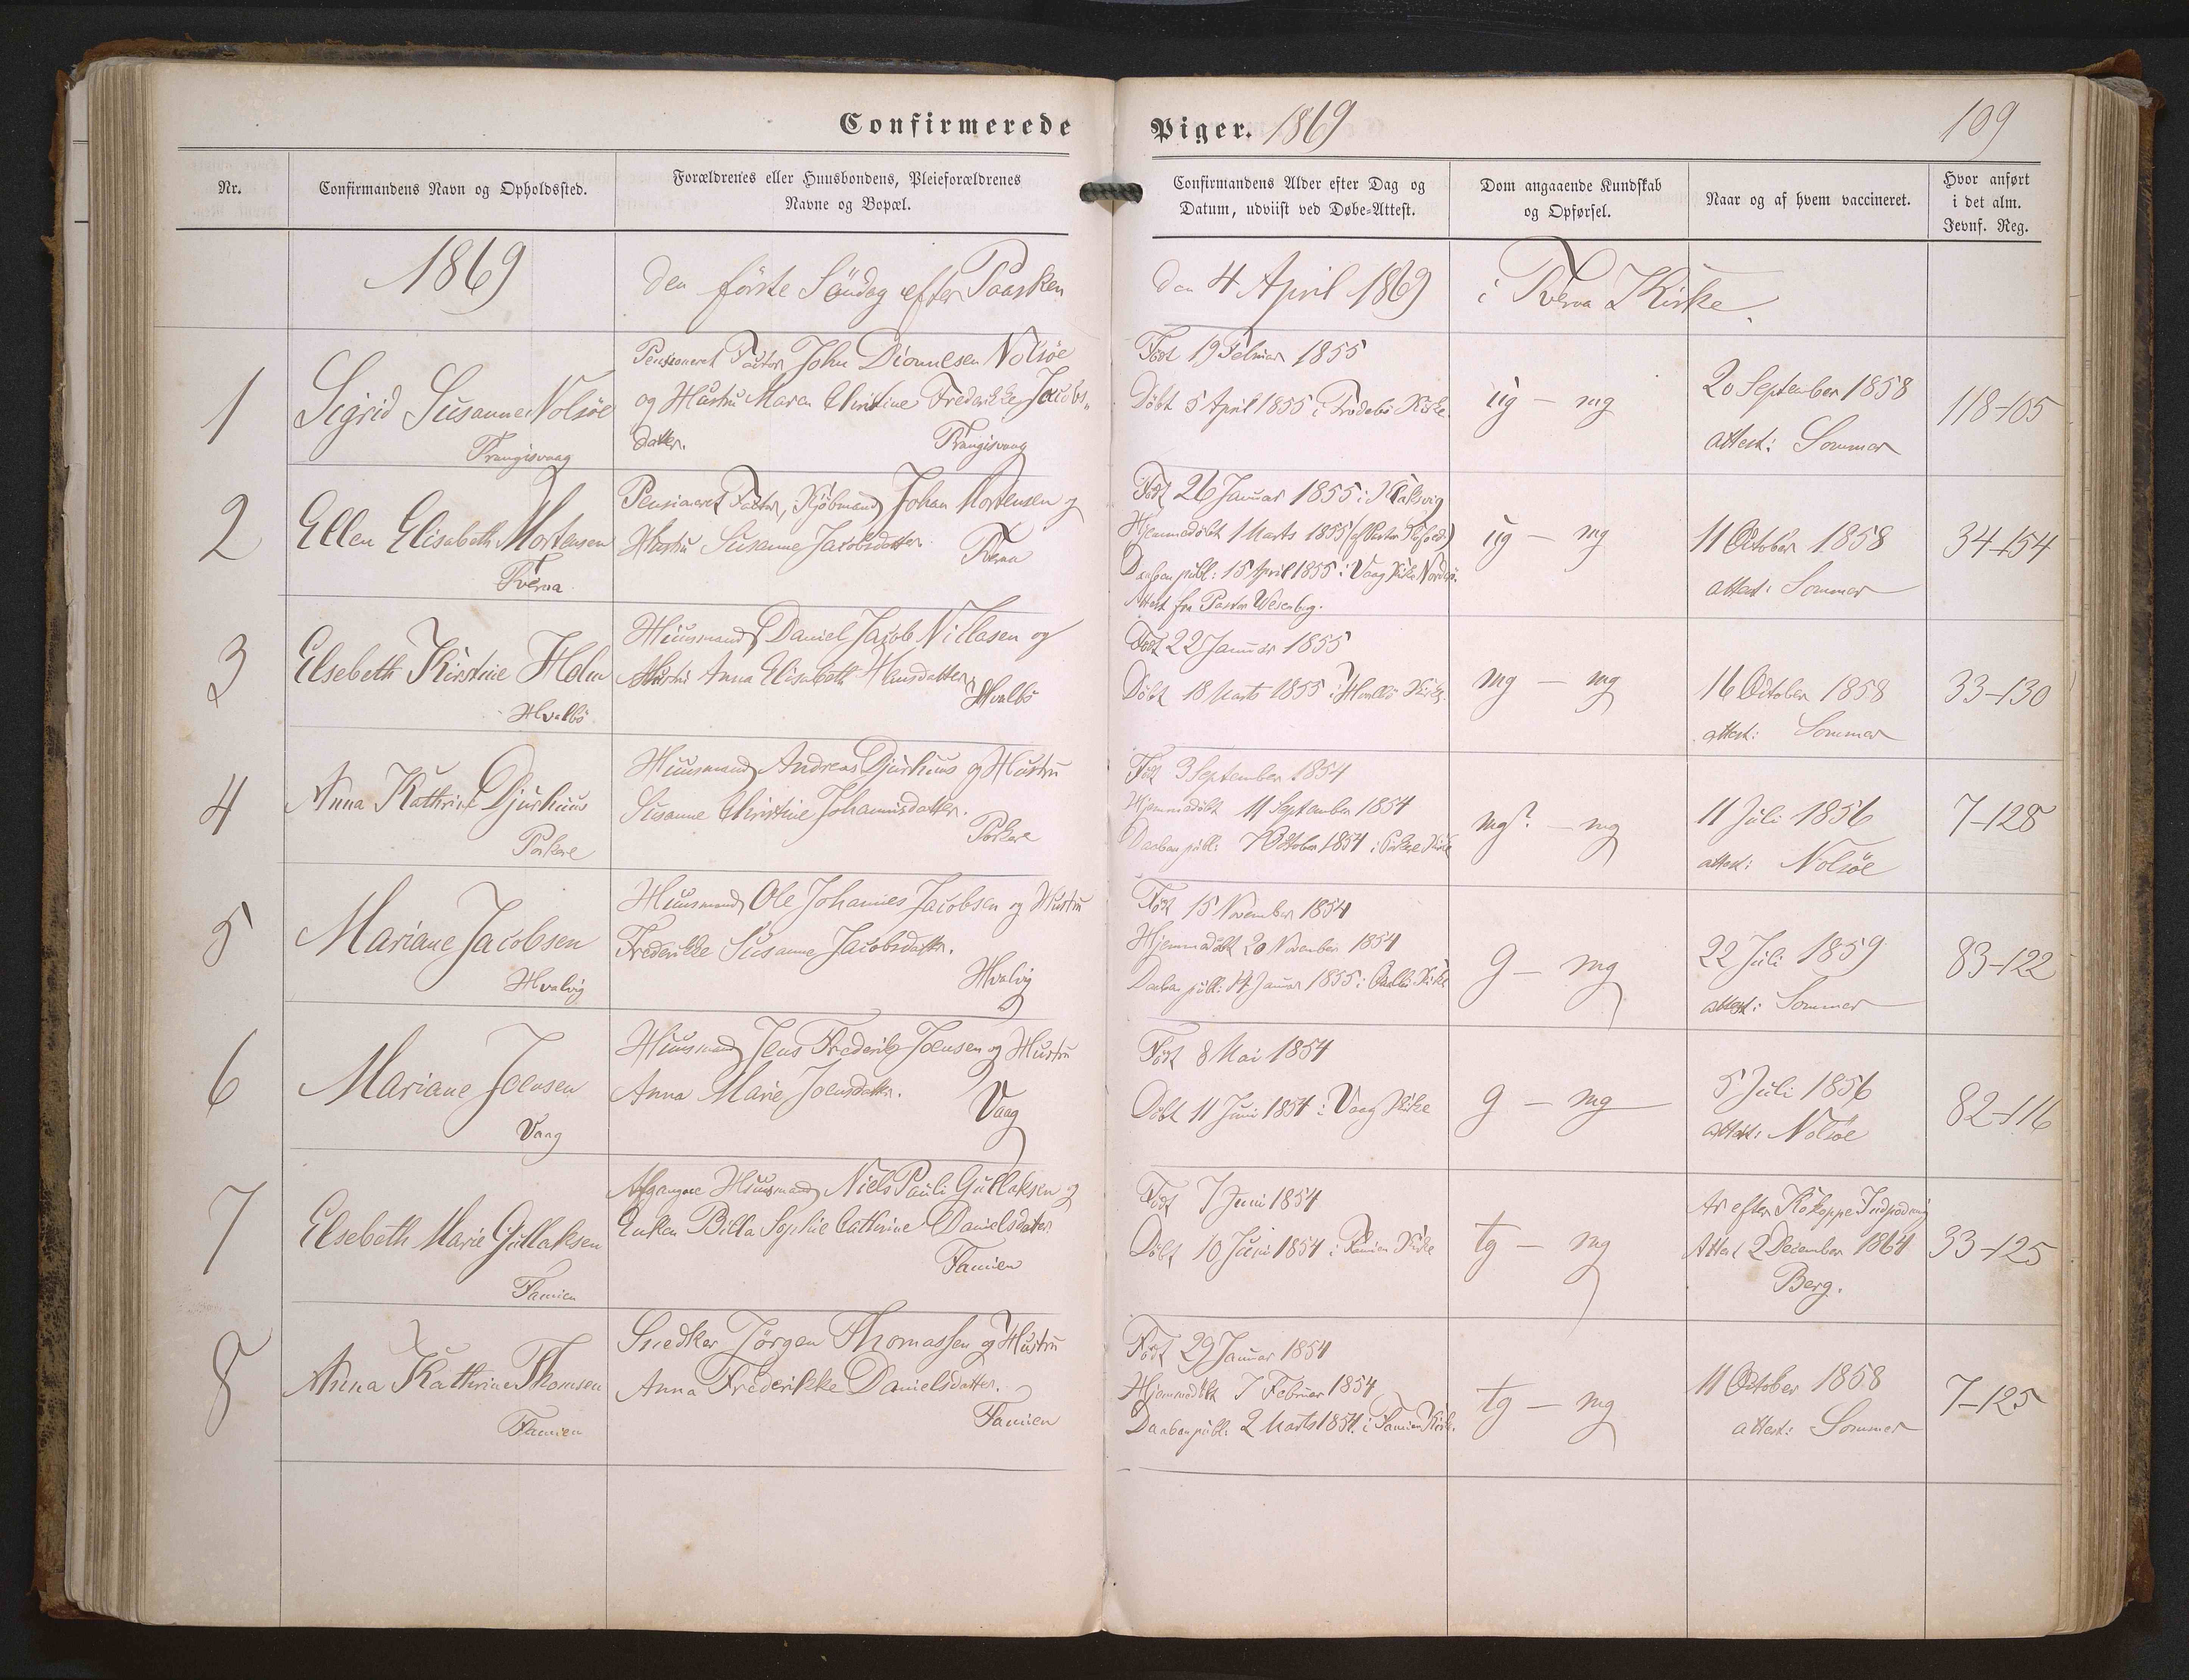 Confirmerede Piger. 1869
109
Nr.
Confirmandens Navn og Opholdssted.
Forældrenes eller Huusbondens, Pleieforældrenes
Navne og Bopæl.
Confirmandens Alder efter Dag og
Datum, udviist ved Døbe-Attest.
Dom angaaende Kundskab
og Opførsel.
Naar og af hvem vaccineret.
Hvor anført
i det alm.
Jevnf. Reg.
1869
den förste Söndag efter Paasken
den 4 April 1869
i Tveraa Kirke.
1
Sigrid Susanne Nolsöe
Trangisvaag
Pensioneret Factor John Dionnesen Nolsöe
og Hustru Maren Christine Frederikke Jacobs„
datter.
Trangisvaag
Født 19 Februar 1855
Döbt 5 April 1855 i Frodebö Kirke.
ug — mg
20 September 1858
attest: Sommer
118-105
2
Ellen Elisabeth Mortensen
Tveraa
Pensioneret Factor, Kjöbmand Johan Mortensen og
Hustru Susanne Jacobsdatter.
Tveraa
Født 26 Januar 1855 i Klaksvig
Hjemmedöbt 1 Marts 1855 (af Pastor)
Daaben publ: 15 April 1855 i Vaag Kirke Norderö.
Attest fra Pastor Wesenberg.
ug — mg
11 October 1858
attest: Sommer
34-154
3
Elsebeth Kirstine Holm
Hvalbö
Huusmand Daniel Jacob Niclasen og
Hustru Anna Elisabeth Hansdatter,
Hvalbö
Født 22 Januar 1855
Döbt 18 Marts 1855 i Hvalbö Kirke.
mg — mg
16 October 1858
attest: Sommer
33-130
4
Anna Kathrine Djurhuus
Porkere
Huusmand Andreas Djurhuus og Hustru
Susanne Christine Johannisdatter.
Porkere
Født 3 September 1854
Hjemmedöbt 11 September 1854
Daaben publ: October 1854 i Porkere Kirke
mg? — mg
11 Juli 1856
attest: Nolsöe
7-128
5
Mariane Jacobsen
Hvalvig
Huusmand Ole Johannes Jacobsen og Hustru
Frederikke Susanne Jacobsdatter.
Hvalvig
Født 15 November 1854
Hjemmedöbt 20 November 1854
Daaben publ: 14 Januar 1855 i Qvalbö Kirke
g — mg
22 Juli 1859
attest: Sommer
83-122
6
Mariane Joensen
Vaag
Huusmand Jens Frederik Joensen og Hustru
Anna Marie Joensdatter.
Vaag
Født 8 Mai 1854
Döbt 11 Juni 1854 i Vaag Kirke
g — mg
5 Juli 1856
attest: Nolsöe
82-116
7
Elsebeth Marie Gullaksen
Famien
Afgangne Huusmand Niels Pauli Gullaksen og
Enken Billa Sophie Cathrine Danielsdatter
Famien
Født 7 Juni 1854
Döbt 10 Juni 1854 i Famien Kirke
tg — mg
Ar efter Kokoppe Indpodning
Attest 2 December 1864
Berg.
33-125
8
Anna Kathrine Thomsen
Famien
Snedker Jörgen Thomassen og Hustru
Anna Frederikke Danielsdatter.
Famien
Født 29 Januar 1854
Hjemmedöbt 7 Februar 1854
Daaben publ: 2 Marts 1854 i Famien Kirke.
tg — mg
11 October 1858
attest: Sommer
7-125